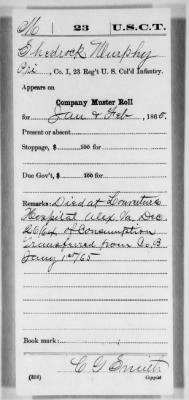 M 23 U.S.C.T.
Shedrock Murphy
Pri, Co. I, 23 Reg't U. S. Col'd Infantry.
Appears on
Company Muster Roll
for Jan & Feb, 1865.
Present or absent
Stoppage, $ 100 for
Due Gov't, $ 100 for
Remarks: Died at Louverture
Hospital Alex Va Dec
26/64 of Consumption
Transferred from Co. B.
Jany 1st/65
Book mark:
C G Smith
(358) Copyist.